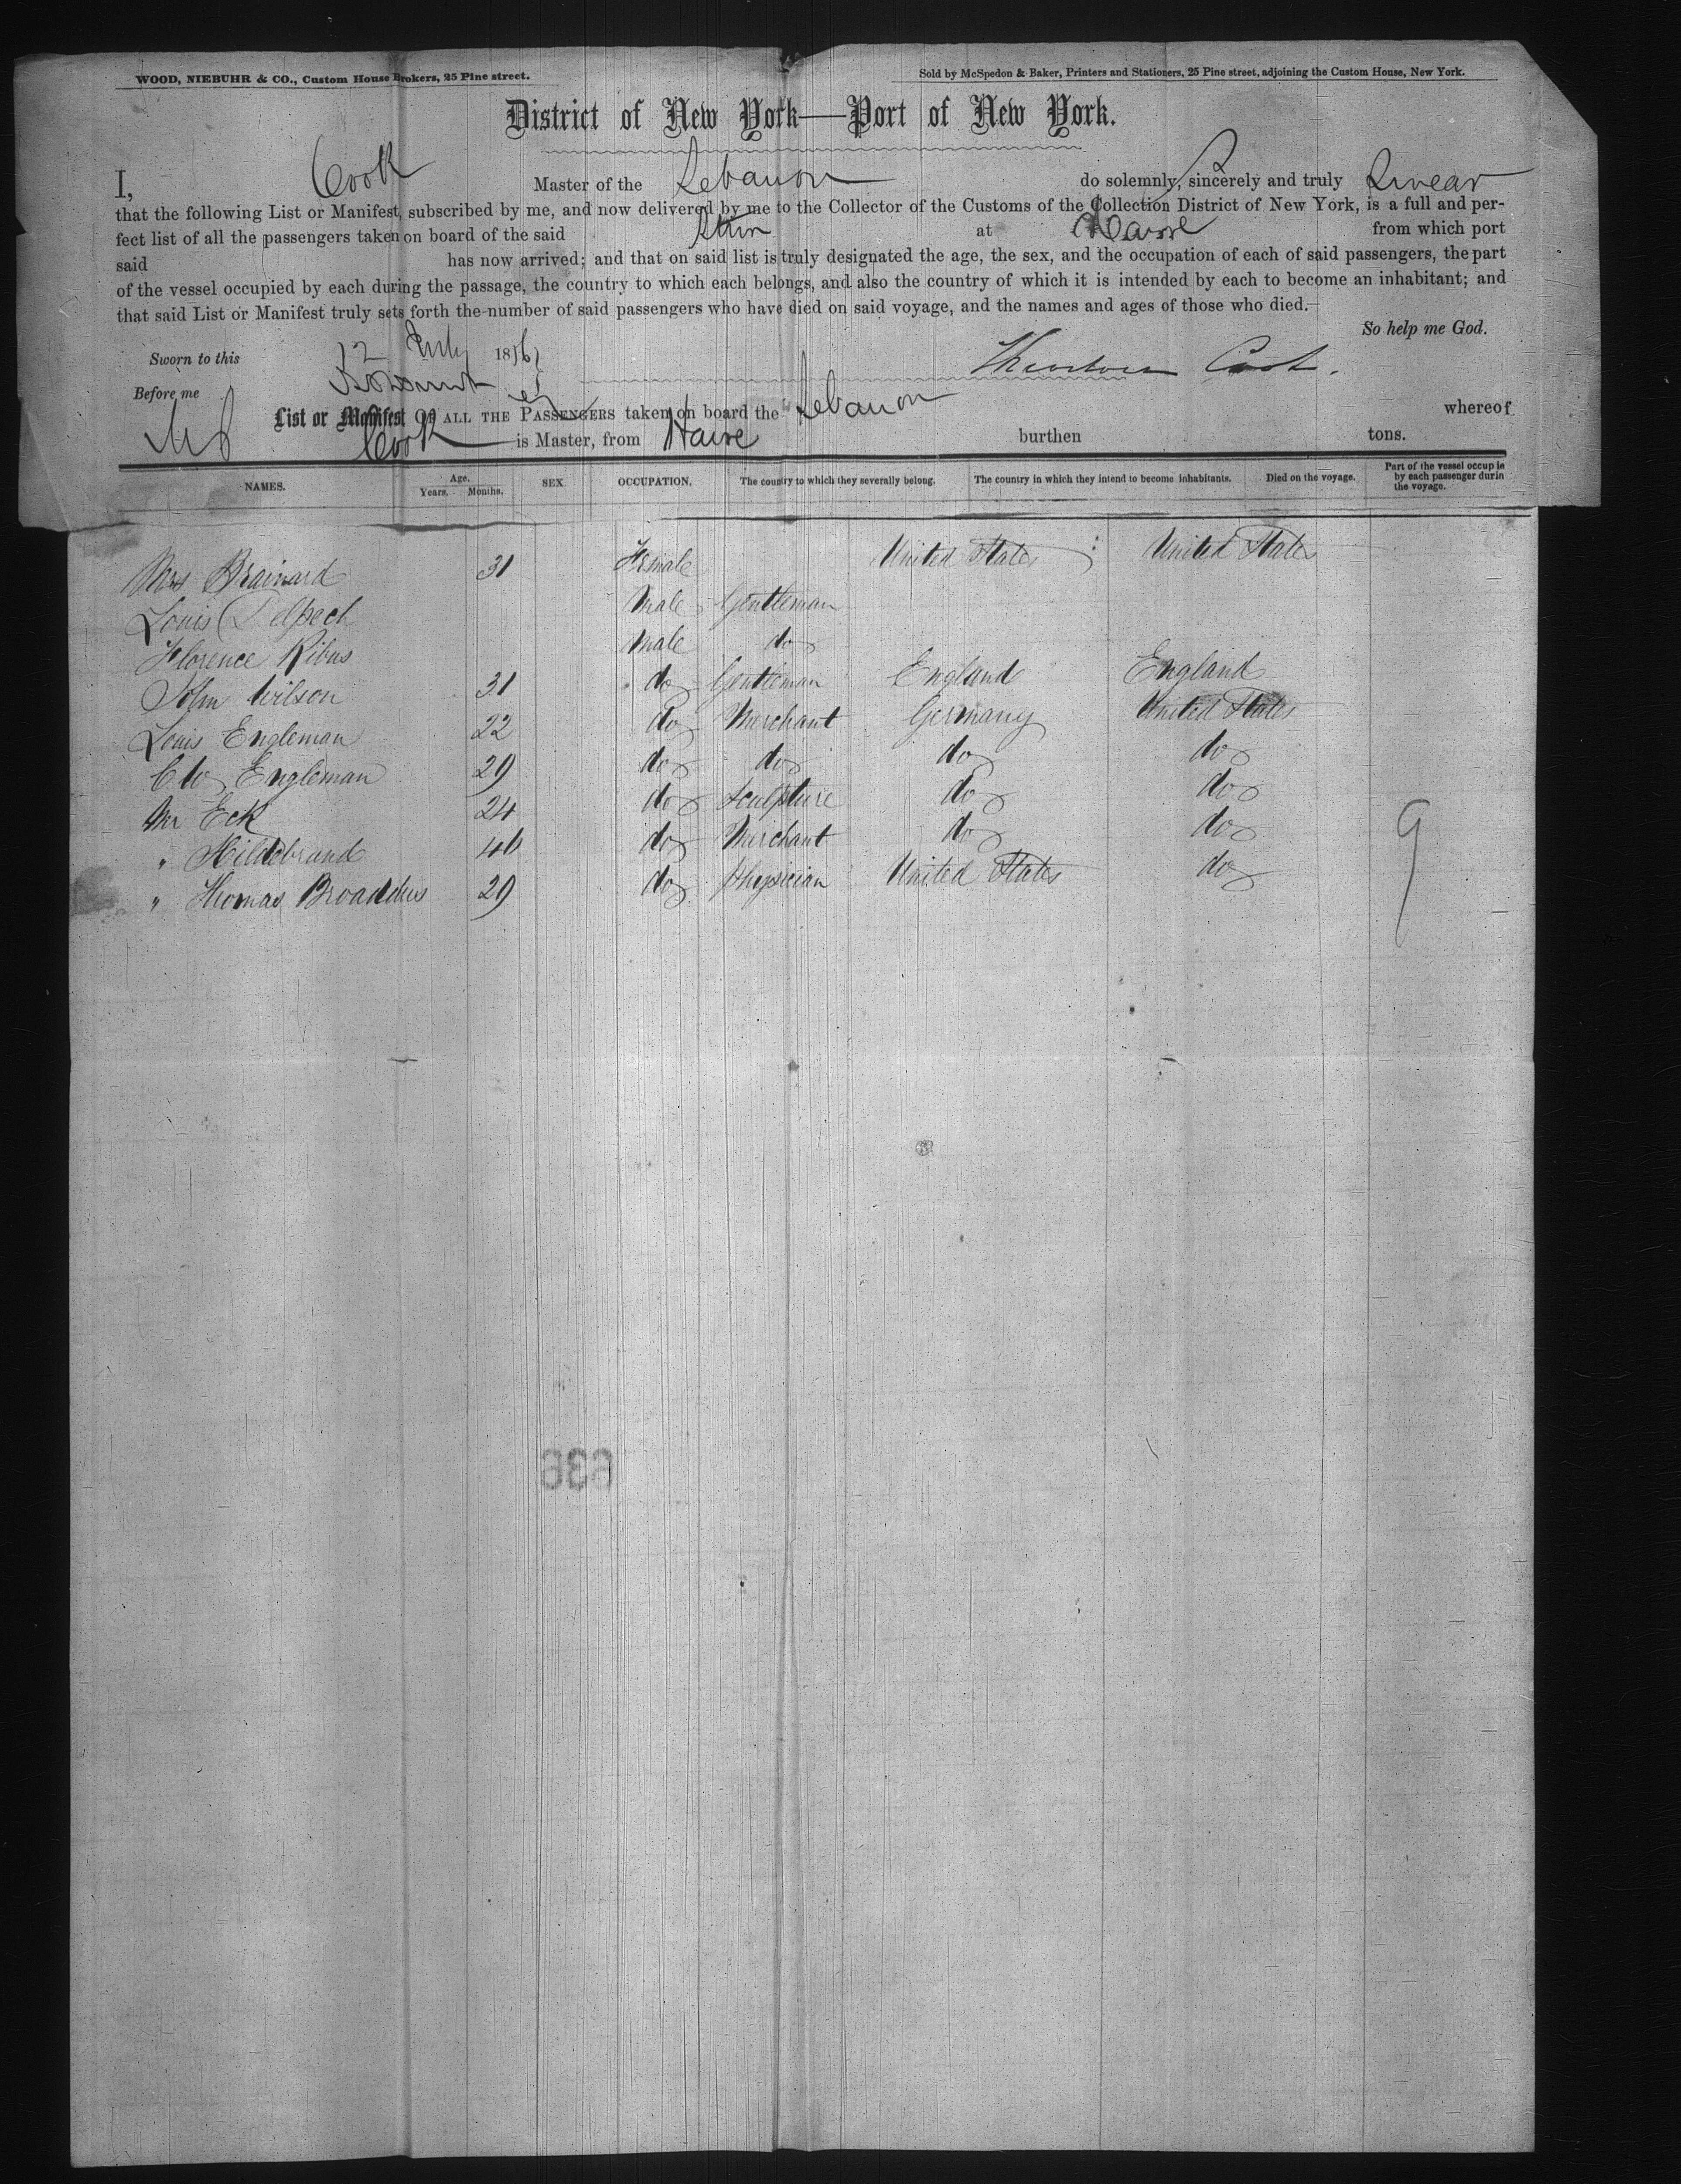 WOOD, NIEBUHR & CO., Custom House Brokers, 25 Pine street. Sold by McSpedon & Baker, Printers and Stationers, 25 Pine street, adjoining the Custom House, New York.
District of New York—Port of New York.
I, Cook Master of the Lebanon do solemnly, sincerely and truly Swear
that the following List or Manifest, subscribed by me, and now delivered by me to the Collector of the Customs of the Collection District of New York, is a full and per-
fect list of all the passengers taken on board of the said Stmr at Havre from which port
said has now arrived; and that on said list is truly designated the age, the sex, and the occupation of each of said passengers, the part
of the vessel occupied by each during the passage, the country to which each belongs, and also the country of which it is intended by each to become an inhabitant; and
that said List or Manifest truly sets forth the number of said passengers who have died on said voyage, and the names and ages of those who died.
So help me God.
Sworn to this 12 July 1856
Before me Cook.
List or Manifest OF ALL THE PASSENGERS taken on board the Lebanon whereof
Cook is Master, from Havre burthen tons.
NAMES. Age. Years. Months. SEX OCCUPATION. The country to which they severally belong. The country in which they intend to become inhabitants. Died on the voyage. Part of the vessel occup ie by each passenger durin the voyage.
Mrs Brainard 31 Female United States United States
Louis Delpech Male Gentleman
Florence Ribas Male do
John Wilson 31 do Gentleman England England
Louis Engleman 22 do Merchant Germany United States
Engleman 29 do do do do
Mr Eck 24 do Sculpture do do
" Hildebrand 46 do Merchant do do
" Thomas Broaddus 29 do Physician United States do
9
636